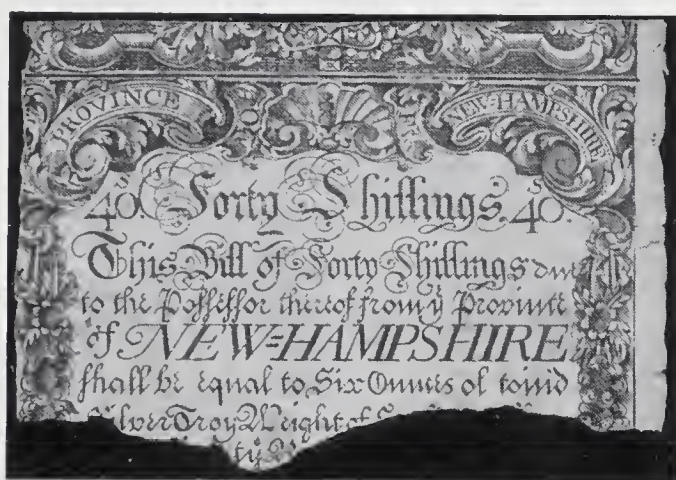 PROVINCE OF NEW-HAMPSHIRE
40.s Forty Shillings 40.s
This Bill of Forty Shillings due
to the Possessor thereof from y Province
of NEW=HAMPSHIRE
shall be equal to Six Ounces of coind
Silver Troy Weight of
ty